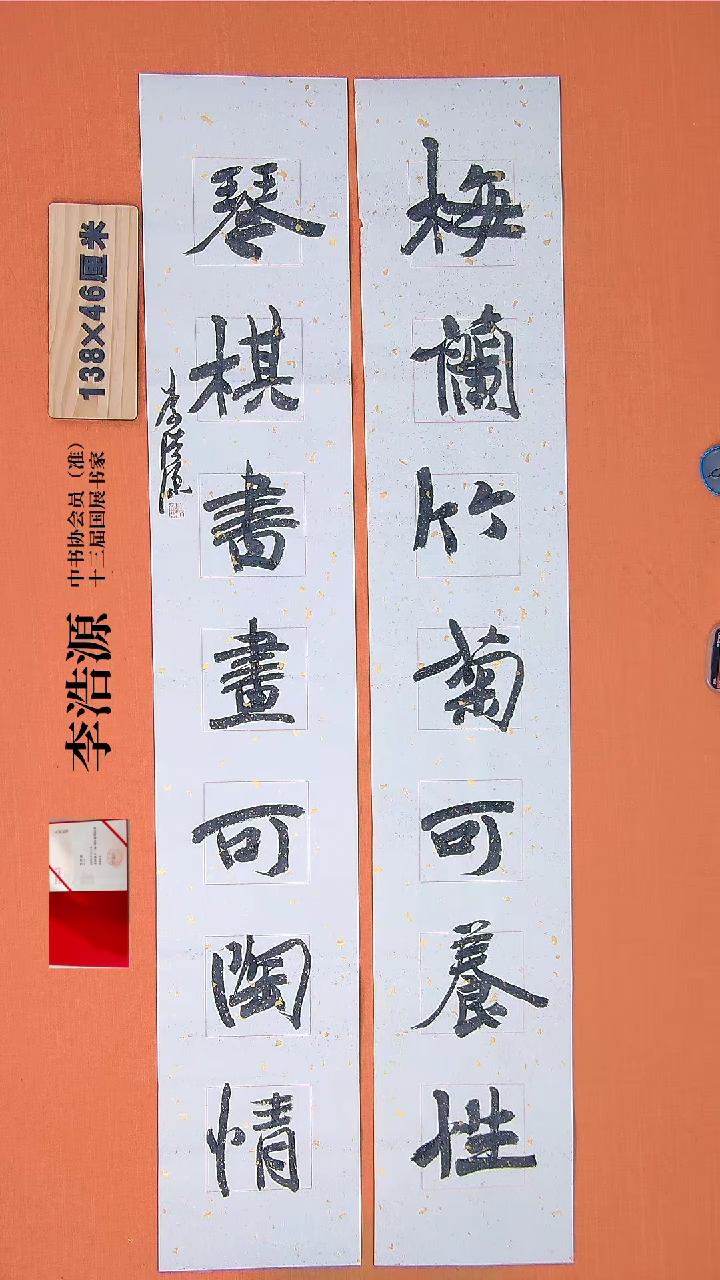 梅蘭竹菊可養性
琴棋書畫可陶情
李浩源
138×46厘米
中书协会员（准）
十三届国展书家
李浩源